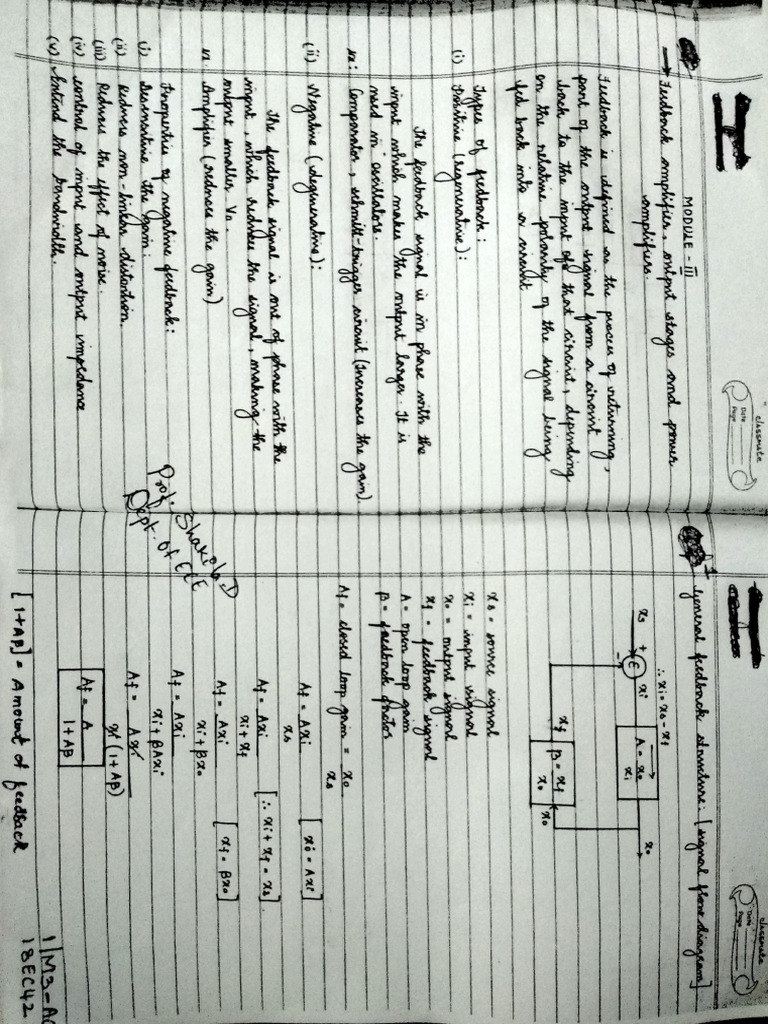 classmate
Date
Page
MODULE - III
→ Feedback amplifiers, output stages and power
amplifiers.
Feedback is defined as the process of returning,
part of the output signal from a circuit
back to the input of that circuit, depending
on the relative polarity of the signal being
fed back into a circuit
Types of feedback:
(i) Positive (regenerative):
The feedback signal is in phase with the
input which makes the output larger. It is
used in oscillators.
Comparator, schmitt-trigger circuit (Increases the gain).
(ii) Negative (degenerative):
The feedback signal is out of phase with the
input, which reduces the signal, making the
output smaller
Amplifier (reduces the gain)
Properties of negative feedback:
(i) Desensitize the gain:
(ii) Reduces non-linear distortion.
(iii) Reduces the effect of noise.
(iv) control of input and output impedance
(v) Extend the bandwidth.
Prof. Shakila.D
Dept. Of ECE
classmate
Date
Page
1
General feedback structure: [signal flow diagram]
∴ xi = xs - xf
xs + Σ xi A = xo/xi xo
-
xf β = xf/xo xo
xs = source signal
xi = input signal
xo = output signal
xf = feedback signal
A = open loop gain
β = feedback factor
Af = closed loop gain = xo/xs
Af = Axi/xs [xo = Axi]
Af = Axi/xi + xf [∴ xi + xf = xs]
Af = Axi/xi + βxo [xf = βxo]
Af = Axi/xi + βAxi
Af = Axi/xi(1+Aβ)
Af = A/1+Aβ
[1+Aβ] = Amount of feedback
1|M3-A
18EC42